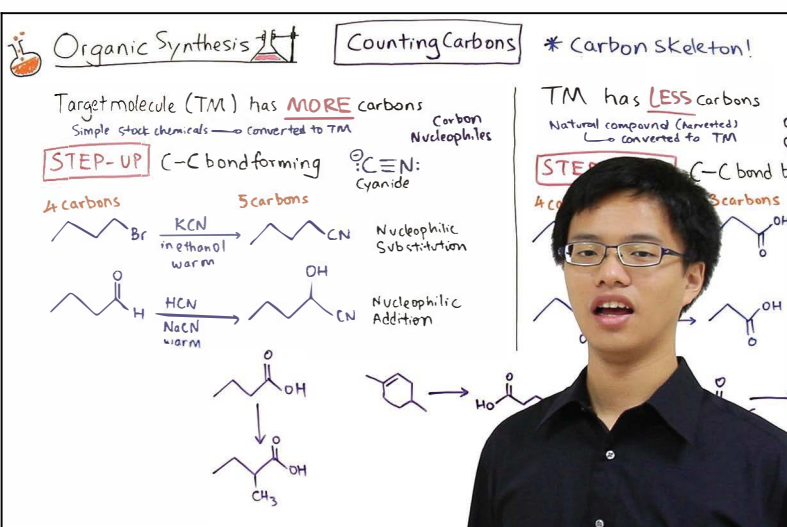 Organic Synthesis
Counting Carbons
* Carbon Skeleton!
Target molecule (TM) has MORE carbons
Simple stock chemicals → converted to TM
Carbon
Nucleophiles
STEP-UP C-C bond forming
⊖:C≡N:
Cyanide
4 carbons
5 carbons
Br
KCN
in ethanol
warm
CN
Nucleophilic
Substitution
O
H
HCN
NaCN
warm
OH
CN
Nucleophilic
Addition
O
OH
O
OH
CH₃
TM has LESS carbons
Natural compound (harvested)
→ converted to TM
C-C bond
carbons
O
OH
O
HO
O